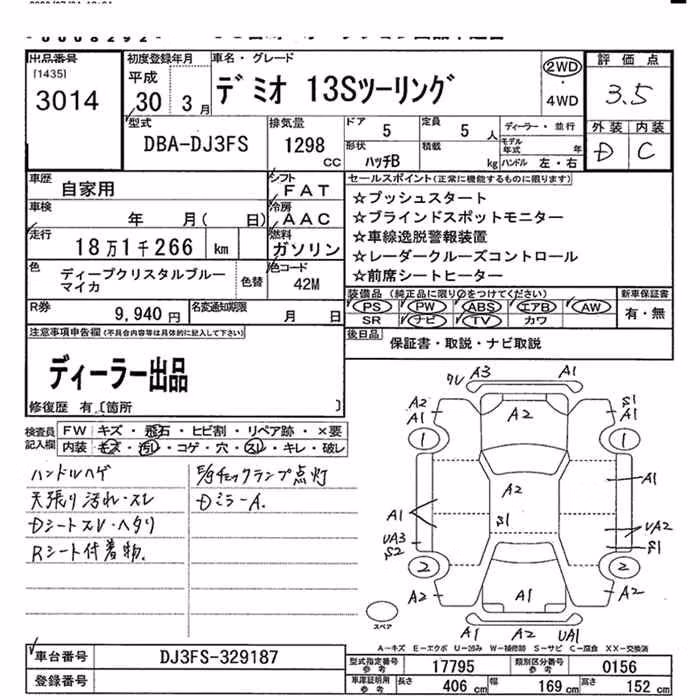 出品番号
[1435]
3014
初度登録年月
平成
30 3月
車名・グレード
デミオ 13Sツーリング
2WD
・
4WD
評価点
3.5
外装 内装
D C
型式
DBA-DJ3FS
排気量
1298
cc
ドア
5
定員
5 人
形状
ハッチB
積載
kg
ディーラー・並行
モデル年式 年
ハンドル 左・右
車歴
自家用
シフト
FAT
車検
年 月( 日)
冷房
AAC
走行
18万1千266 km
燃料
ガソリン
色
ディープクリスタルブルー
マイカ
色替
色コード
42M
R券
9,940 円
名変通知期限
月 日
セールスポイント(正常に機能するものに限ります)
☆プッシュスタート
☆ブラインドスポットモニター
☆車線逸脱警報装置
☆レーダークルーズコントロール
☆前席シートヒーター
装備品(純正品に限り○をつけてください)
PS PW ABS エアB AW
SR ナビ TV カワ
新車保証書
有・無
後日品
保証書・取説・ナビ取説
注意事項申告欄(不具合内容等は具体的に記入して下さい)
ディーラー出品
修復歴 有〔箇所 〕
検査員
記入欄
FW キズ・飛石・ヒビ割・リペア跡・×要
内装 キズ・汚れ・コゲ・穴・スレ・キレ・破レ
ハンドルハゲ
天張り汚れ・スレ
Dシートスレ・ヘタリ
Rシート付着物.
E/gチェックランプ点灯
Dミラー A.
ワレ A3 A1
A2
A1
A2
S1
A1
1 1
A2
A1
S1
A1
UA2
UA3
S2
S1
2 2
A2 A1 A2
スペア
A1 A2 UA1
A-キズ E-エクボ U-凹み W-補修跡 S-サビ C-腐食 XX-交換済
車台番号
DJ3FS-329187
登録番号
型式指定番号
参考
17795
類別区分番号
参考
0156
車庫証明用
参考
長さ
406 cm
幅
169 cm
高さ
152 cm